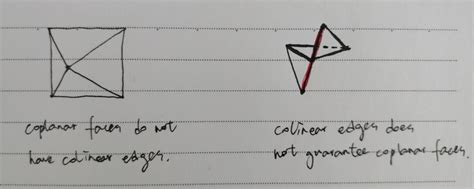 coplanar faces do not
have colinear edges.
colinear edges does
not guarantee coplanar faces.